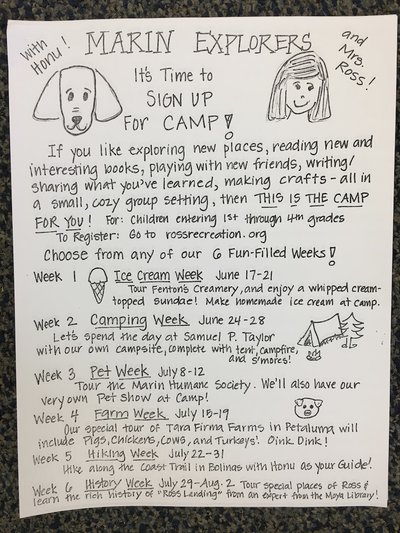 with Honu!
MARIN EXPLORERS
and Mrs. Ross!
It's Time to
SIGN UP
FOR CAMP!
If you like exploring new places, reading new and
interesting books, playing with new friends, writing/
sharing what you've learned, making crafts - all in
a small, cozy group setting, then THIS IS THE CAMP
FOR YOU! For: Children entering 1st through 4th grades
To Register: Go to rossrecreation.org
Choose from any of our 6 Fun-Filled Weeks!
Week 1 Ice Cream Week June 17-21
Tour Fenton's Creamery, and enjoy a whipped cream-
topped sundae! Make homemade ice cream at camp.
Week 2 Camping Week June 24-28
Let's spend the day at Samuel P. Taylor
with our own campsite, complete with tent, campfire,
and s'mores!
Week 3 Pet Week July 8-12
Tour the Marin Humane Society. We'll also have our
very own Pet Show at Camp!
Week 4 Farm Week July 15-19
Our special tour of Tara Firma Farms in Petaluma will
include Pigs, Chickens, Cows, and Turkeys! Oink Oink!
Week 5 Hiking Week July 22-31
Hike along the Coast Trail in Bolinas with Honu as your Guide!
Week 6 History Week July 29-Aug. 2 Tour special places of Ross &
learn the rich history of "Ross Landing" from an expert from the Moya Library!